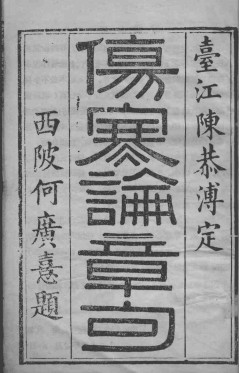 臺江陳恭溥定
傷寒論章句
西陂何廣憙題